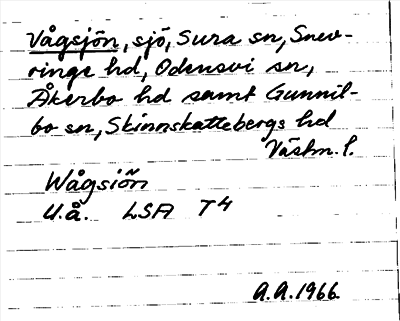 Vågsjön, sjö, Sura sn, Snev-
ringe hd, Odensvi sn,
Åkerbo hd samt Gunnil-
bo sn, Skinnskattebergs hd
Västm. l.
Wågsiön
U.å. LSA T4
A.A. 1966